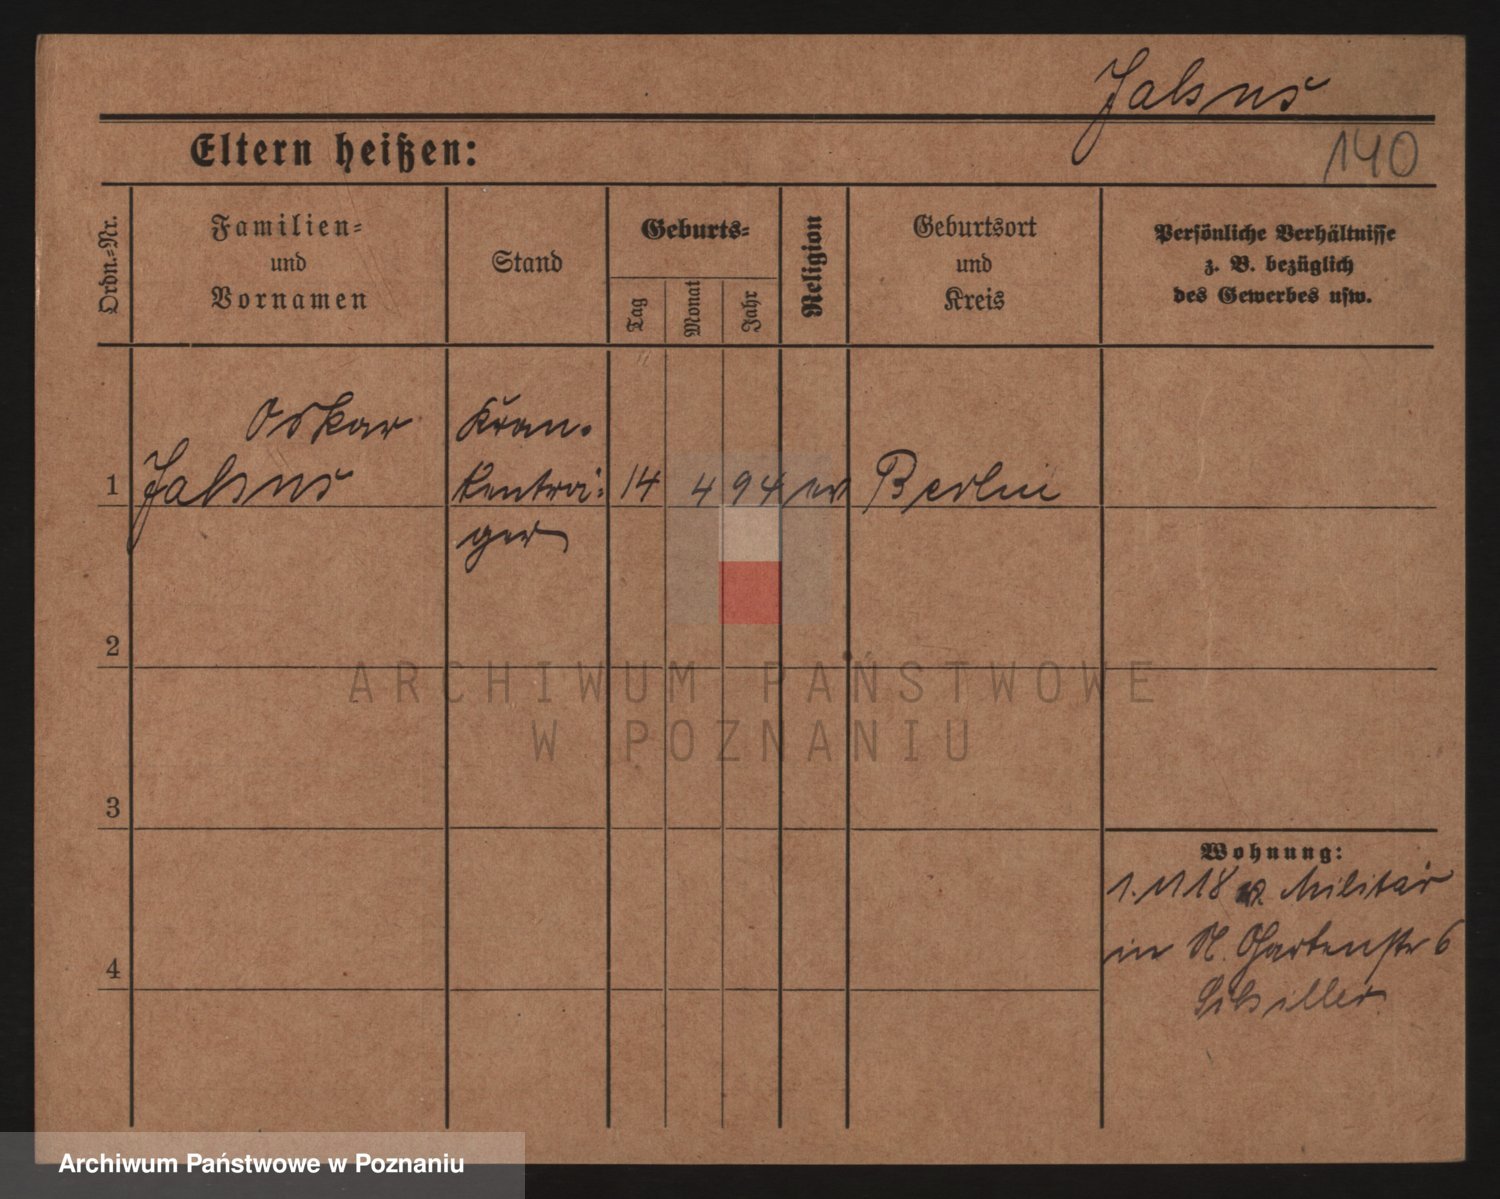 Jahns
Eltern heißen:
140
Ordn.-Nr.
Familien-
und
Vornamen
Stand
Geburts-
Tag
Monat
Jahr
Religion
Geburtsort
und
Kreis
Persönliche Verhältnisse
z. B. bezüglich
des Gewerbes usw.
Oskar
Jahns
Kran-
kenträ-
ger
1
14
4
94
ev
Berlin
2
3
4
Wohnung:
1. 11 18 Militär
in N. Gartenstr 6
Schiller
ARCHIWUM PAŃSTWOWE
W POZNANIU
Archiwum Państwowe w Poznaniu